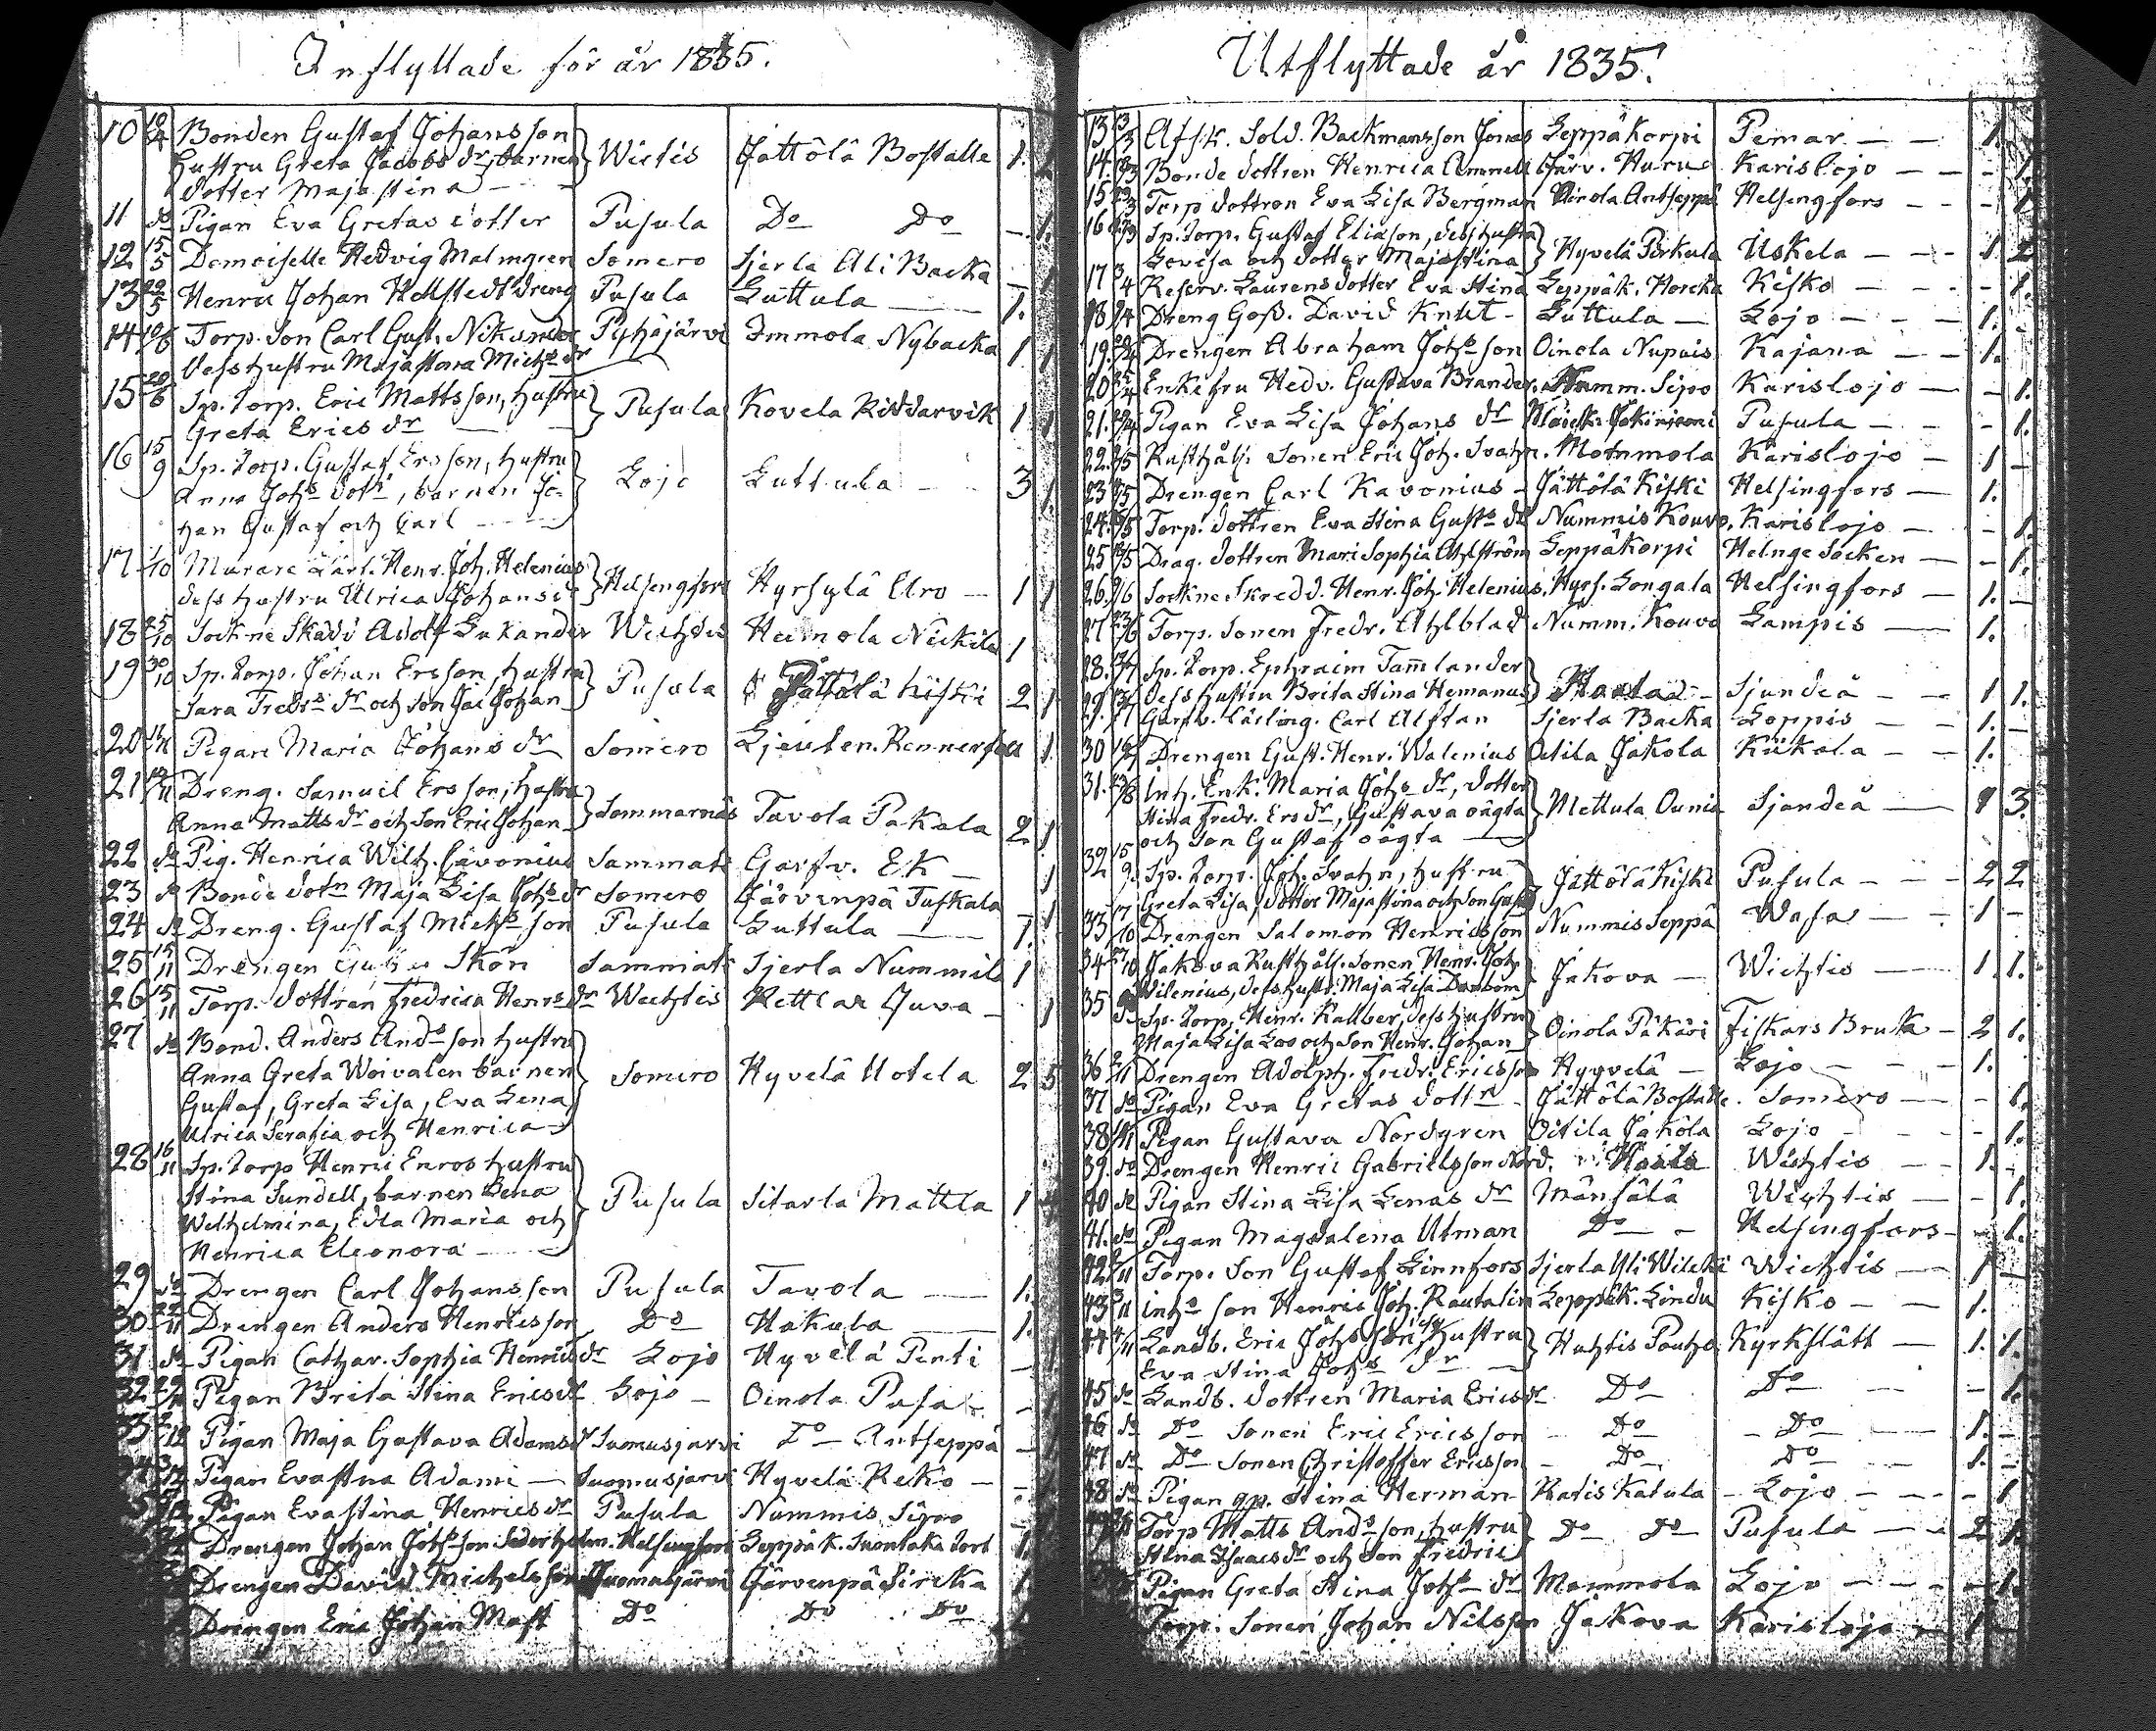 Inflyttade för år 1835.
10 10/4 Bonden Gustaf Johansson
hustru Greta Jacobs dr, barnen Wictis Jättölä Bostalle 1. 1
dotter Maja Stina
11 do Pigan Eva Gretas dotter Pusula Do Do - 1.
12 15/5 Demoiselle Hedvig Malmgren Somero Sjerla Ali Backa - 1
13 22/5 Henric Johan Hellstedt dreng Pusula Luttula 1.
14 10/6 Torp. Son Carl Gust. Pyhäjärvi Immola Nybacka 1 1
dess hustru Majastina Michs dr
15 20/6 Sp. Torp. Eric Mattsson, hustru Pusula Kovela Riddarvik 1 1
Greta Erics dr
16 15/9 Sp. Torp. Gustaf Ersson, hustru
Anna Johs dotr, barnen Jo- Lojo Luttula 3 1.
han Gustaf och Carl
17 1/10 Murare Lärl. Henr. Joh. Helenius
dess hustru Ulrica Johans dr Helsingfors Hyrsylä Uro 1 1
18 25/10 Sockne Skädd. Adolf Lukander Wichtis Heimola Nickila 1
19 30/10 Sp. Torp. Johan Ersson, hustru Pusula Jättölä Kiski 2 1
Sara Fredrs dr och son Joh. Johan
20 1/11 Pigan Maria Johans dr Somero Ljeuten. Rennerfelt 1.
21 10/11 Dreng. Samuel Ersson, hustru
Anna Matts dr och Son Eric Johan Sommarnäs Tavola Pakala 2 1
22 do Pig. Henrica Wilh. Cavonius Sammati Garfv. Ek 1
23 do Bonde dotn Maja Lisa Johs dr Somero Järvenpä Tuskala - 1
24 do Dreng. Gustaf Michsson Pusula Luttula 1.
25 15/11 Drengen Skön Sammati Sjerla Nummila 1
26 15/11 Torp. dottren Fredrica Henrs dr Wichtis Kettlar Juva - 1
27 do Bond. Anders Andsson hustru
Anna Greta Woivalen barnen Somero Hyvelä Uotela 2 5
Gustaf, Greta Lisa, Eva Lena,
Ulrica Serafia och Henrica
28 16/11 Sp. Torp Henric Enros hustru
Stina Sundell, barnen Lena Pusula Sitarla Mattla 1 4
Wilhelmina, Edla Maria och
Henrica Eleonora
29 do Drengen Carl Johansson Pusula Tavola 1.
30 22/11 Drengen Anders Henricsson Do Hakula 1.
31 do Pigan Cathar. Sophia Henrics dr Lojo Hyvelä Penti - 1
32 29/11 Pigan Brita Stina Erics dr Lojo Oinola Pusa - 1
33 2/12 Pigan Maja Gustava Adams dr Suomusjarvi Do Antseppä - 1
34 3/12 Pigan Evastina Adami Suomusjarvi Hyvelä Reko
Pigan Evastina Henrics dr Pusula Nummis Sipo
Drengen Johan Johsson Helsingfors Leppäk. Suontaka Torp 1.
Drengen David Michelsson Suomusjärvi Järvenpä Sircka 1
Drengen Eric Johan Mast Do Do Do 1
Utflyttade år 1835.
13 3/3 Afsk. Sold. Backmansson Jonas Leppäkorpi Pemar 1.
14. Bonde dottren Henrica Emmeli Järv. Huru Karislojo - 1
15 22/3 Torp dottron Eva Lisa Bergman Oinola Antseppä Helsingfors - 1
16 Sp. Torp. Gustaf Eliason, dess hustru
Lovisa och dotter Majastina Hyvelä Pirkula Uskela 1 2
17 3/4 Reserv. Laurens dotter Eva Stina Leppäk. Horcka Kisko - 1.
18 Dreng Goss. David Knut Luttula Lojo 1.
19. Drengen Abraham Johsson Oinola Nupuis Kajana 1.
20 Enkefru Hedv. Gustava Brander. Numm. Sipo Karislojo - 1.
21. Pigan Eva Lisa Johans dr Pusula - 1.
22. Rusthåls. Sonen Eric Joh. Svahn. Mommola Karislojo 1 -
23 Drengen Carl Kavonius Jättölä Kiski Helsingfors 1.
24. Torp. dottren Eva Stina Gusts dr Nummis Kouvo. Karislojo - 1.
25 Drag. dottren Mari Sophia Ahlström Leppäkorpi Helnge Socken - 1.
26. Sockne Skredd. Henr. Joh. Helenius, Hyrs. Longala Helsingfors 1.
27 23/6 Torp. Sonen Fredr. Ahlblad Numm. Kouvo Lampis 1.
28. Sp. Torp. Ephraim Tamlander
dess hustru Brita Stina Hemanus Sjundeå 1 1.
29. Garfv. Lärling. Carl Alftan Sjerla Backa Loppis 1.
30 Drengen Gust. Henr. Walenius Oitila Jakola Kiikala 1.
31. Inh. Enk. Maria Johs dr, dotter
Stina Fredr. Ers dr, Gustava oägta Mettula Ounia Sjundeå 1 3.
och Son Gustaf oägta
32 15/9 Sp. Torp. Joh. Svahn, hustru Jättölä Kiski Pusula 2 2
Greta Lisa, dotter Majastina och Son Gustaf
33 17/10 Drengen Salomon Henricsson Nummis Seppä Wasa 1 -
34 Jakova Rusthåll. Sonen Henr. Joh. Jakova Wichtis 1 1.
Wilenius, dess hustr. Maja Lisa Danbom
35 Sp. Torp. Henr. Kallber, dess hustru
Maja Lisa Loo och Son Henr. Johan Oinola Päkäri Fiskars Bruk 2 1.
36 2/11 Drengen Adolph. Fredr. Ericsson Hyvelä Lojo 1.
37 do Pigan Eva Gretas dottr Jättölä Bostalle. Somero - 1.
38 Pigan Gustava Nordgren Oitila Jakola Lojo - 1.
39. do Drengen Henric Gabrielsson Nord. Wichtis 1. -
40 do Pigan Stina Lisa Lenas dr Mänsälä Wichtis - 1.
41. do Pigan Magdalena Utman Do Helsingfors - 1.
42 Torp. Son Gustaf Linnfors Sjerla Yli Wilcki Wichtis 1 -
43 3/11 inhs son Henric Joh. Rautalin Leppäk. Lindu Kisko 1.
44 Landb. Eric Johsson, hustru Huhtis Pouho Kyrkslätt 1. 1.
Eva Stina Johs dr
45 do Landb. dottren Maria Erics dr Do Do - 1.
46 do Do Sonen Eric Ericsson Do Do 1.
47 do Do Sonen Christoffer Ericsson Do Do 1. -
48 do Pigan gp. Stina Herman Ratis Katula Lojo - 1
Torp Matts Andsson, hustru Do Do Pusula 2 1.
Stina Isaacs dr och Son Fredric
Pigan Greta Stina Johs dr Mommola Lojo - 1.
Torp. Sonen Johan Nilsson Jakova Karislojo 1 -